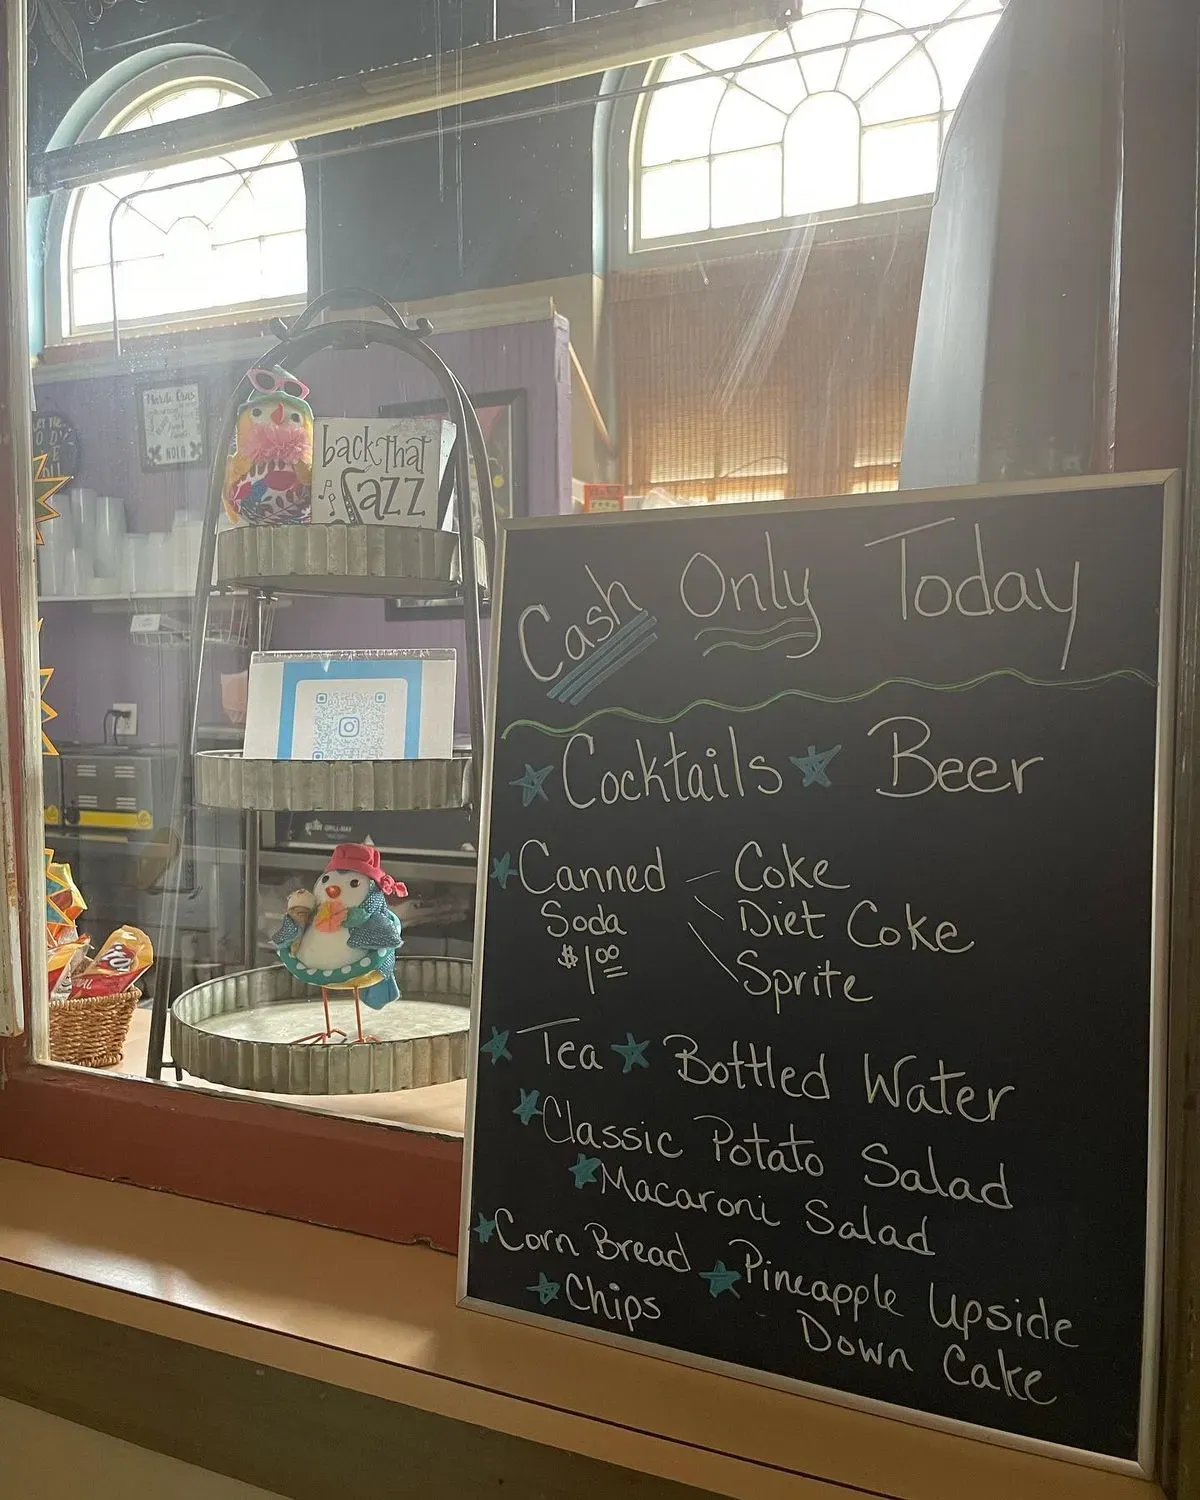 Mardi Gras
NOLA
back that
Jazz
Cash Only Today
Cocktails Beer
Canned Coke
Soda Diet Coke
$1.00 Sprite
Tea Bottled Water
Classic Potato Salad
Macaroni Salad
Corn Bread Pineapple Upside
Chips Down Cake